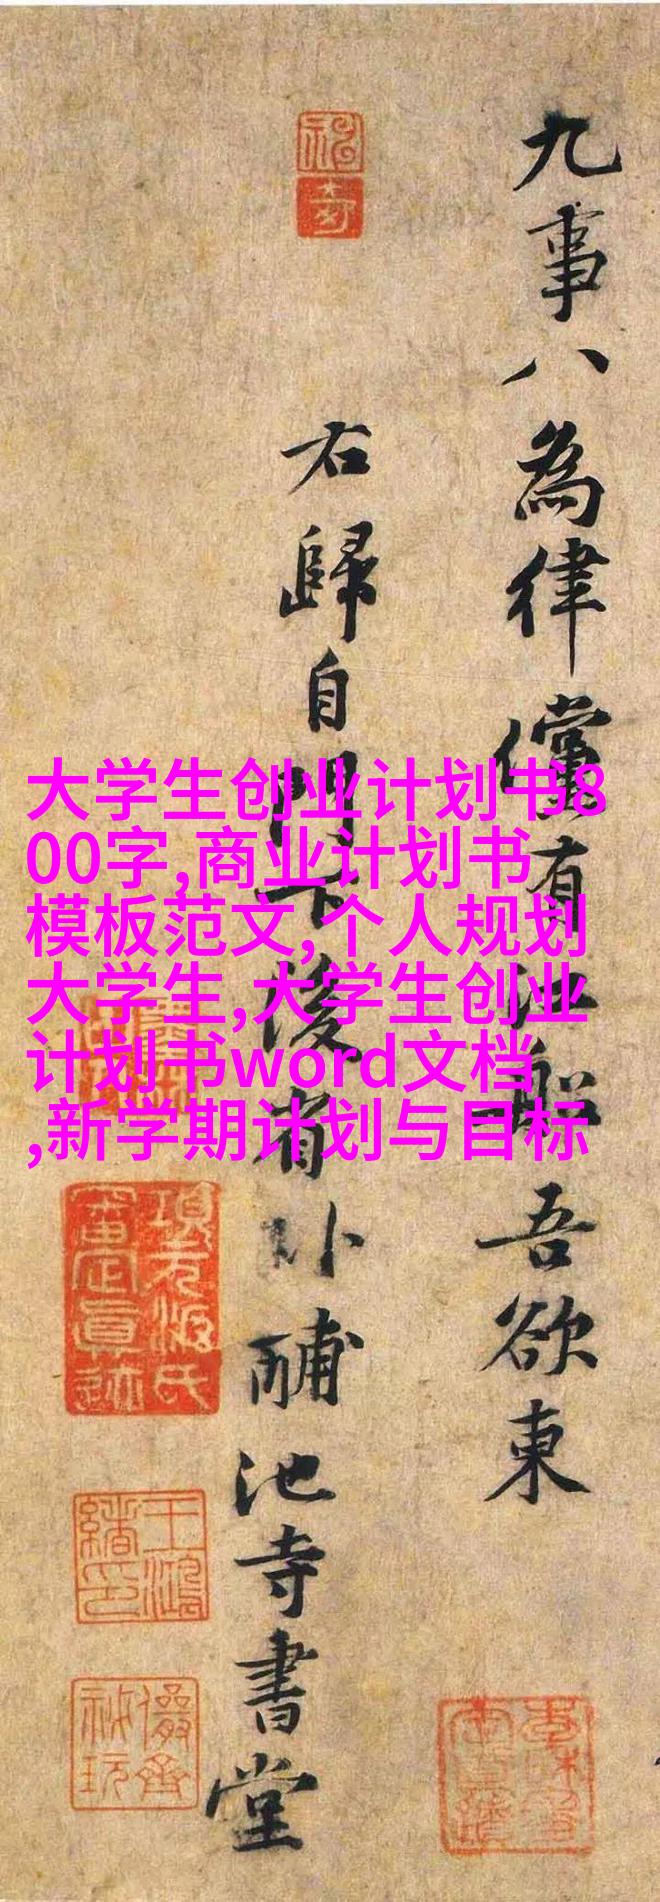 九事八為律儻有江船吾欲東
右歸自門下後省卧酺池寺書堂
大学生创业计划书8
00字,商业计划书
模板范文,个人规划
大学生,大学生创业
计划书word文档
,新学期计划与目标
項元汴氏審定真跡